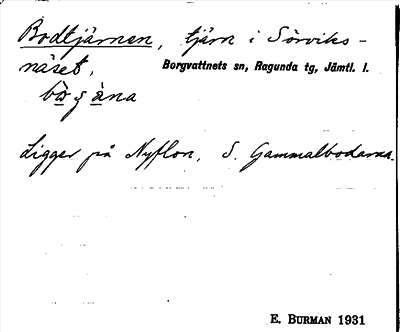 Bodtjärnen, tjärn i Sörviks-
näset, Borgvattnets sn, Ragunda tg, Jämtl. l.
Ligger på Nyflon, S. Gammalbodarna.
E. BURMAN 1931